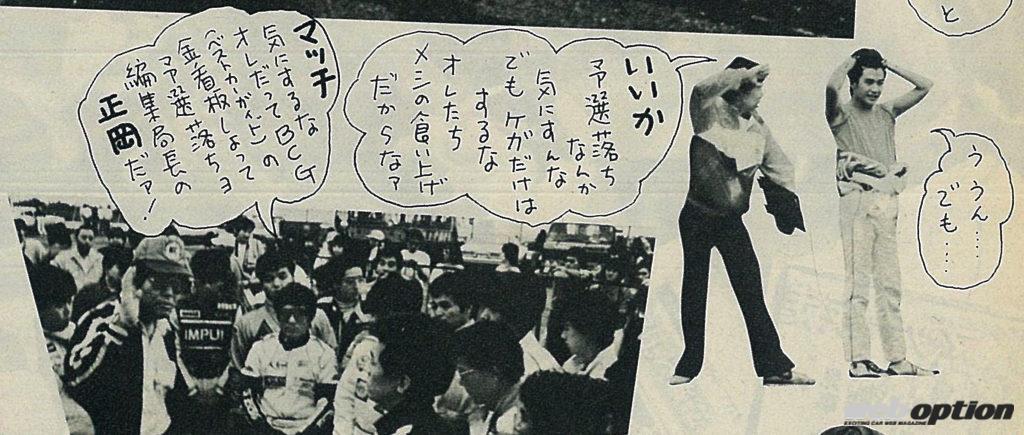 と
ううん……
でも……
いいか
予選落ち
なんか
気にすんな
でもケガだけは
するな
オレたち
メシの食い上げ
だからなァ
マッチ
気にするな
オレだってBCG
(ベストカーガイド)の
金看板しょって
予選落ちヨ
編集局長の
正岡だァ!
IMPUL
web option
EXCITING CAR WEB MAGAZINE